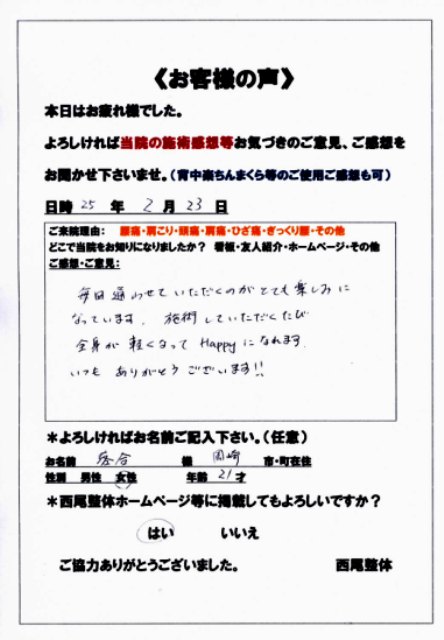 《お客様の声》
本日はお疲れ様でした。
よろしければ当院の施術感想等お気づきのご意見、ご感想を
お聞かせ下さいませ。（背中楽ちんまくら等のご使用ご感想も可）
日時 25 年 2 月 23 日
ご来院理由： 腰痛・肩こり・頭痛・肩痛・ひざ痛・ぎっくり腰・その他
どこで当院をお知りになりましたか？ 看板・友人紹介・ホームページ・その他
ご感想・ご意見：
毎回通わせていただくのがとても楽しみに
なっています。施術していただくたび
全身が軽くなって Happyになれます。
いつもありがとうございます!!
＊よろしければお名前ご記入下さい。（任意）
お名前 様 岡崎 市・町在住
性別 男性 女性 年齢 21 才
＊西尾整体ホームページ等に掲載してもよろしいですか？
はい いいえ
ご協力ありがとうございました。 西尾整体